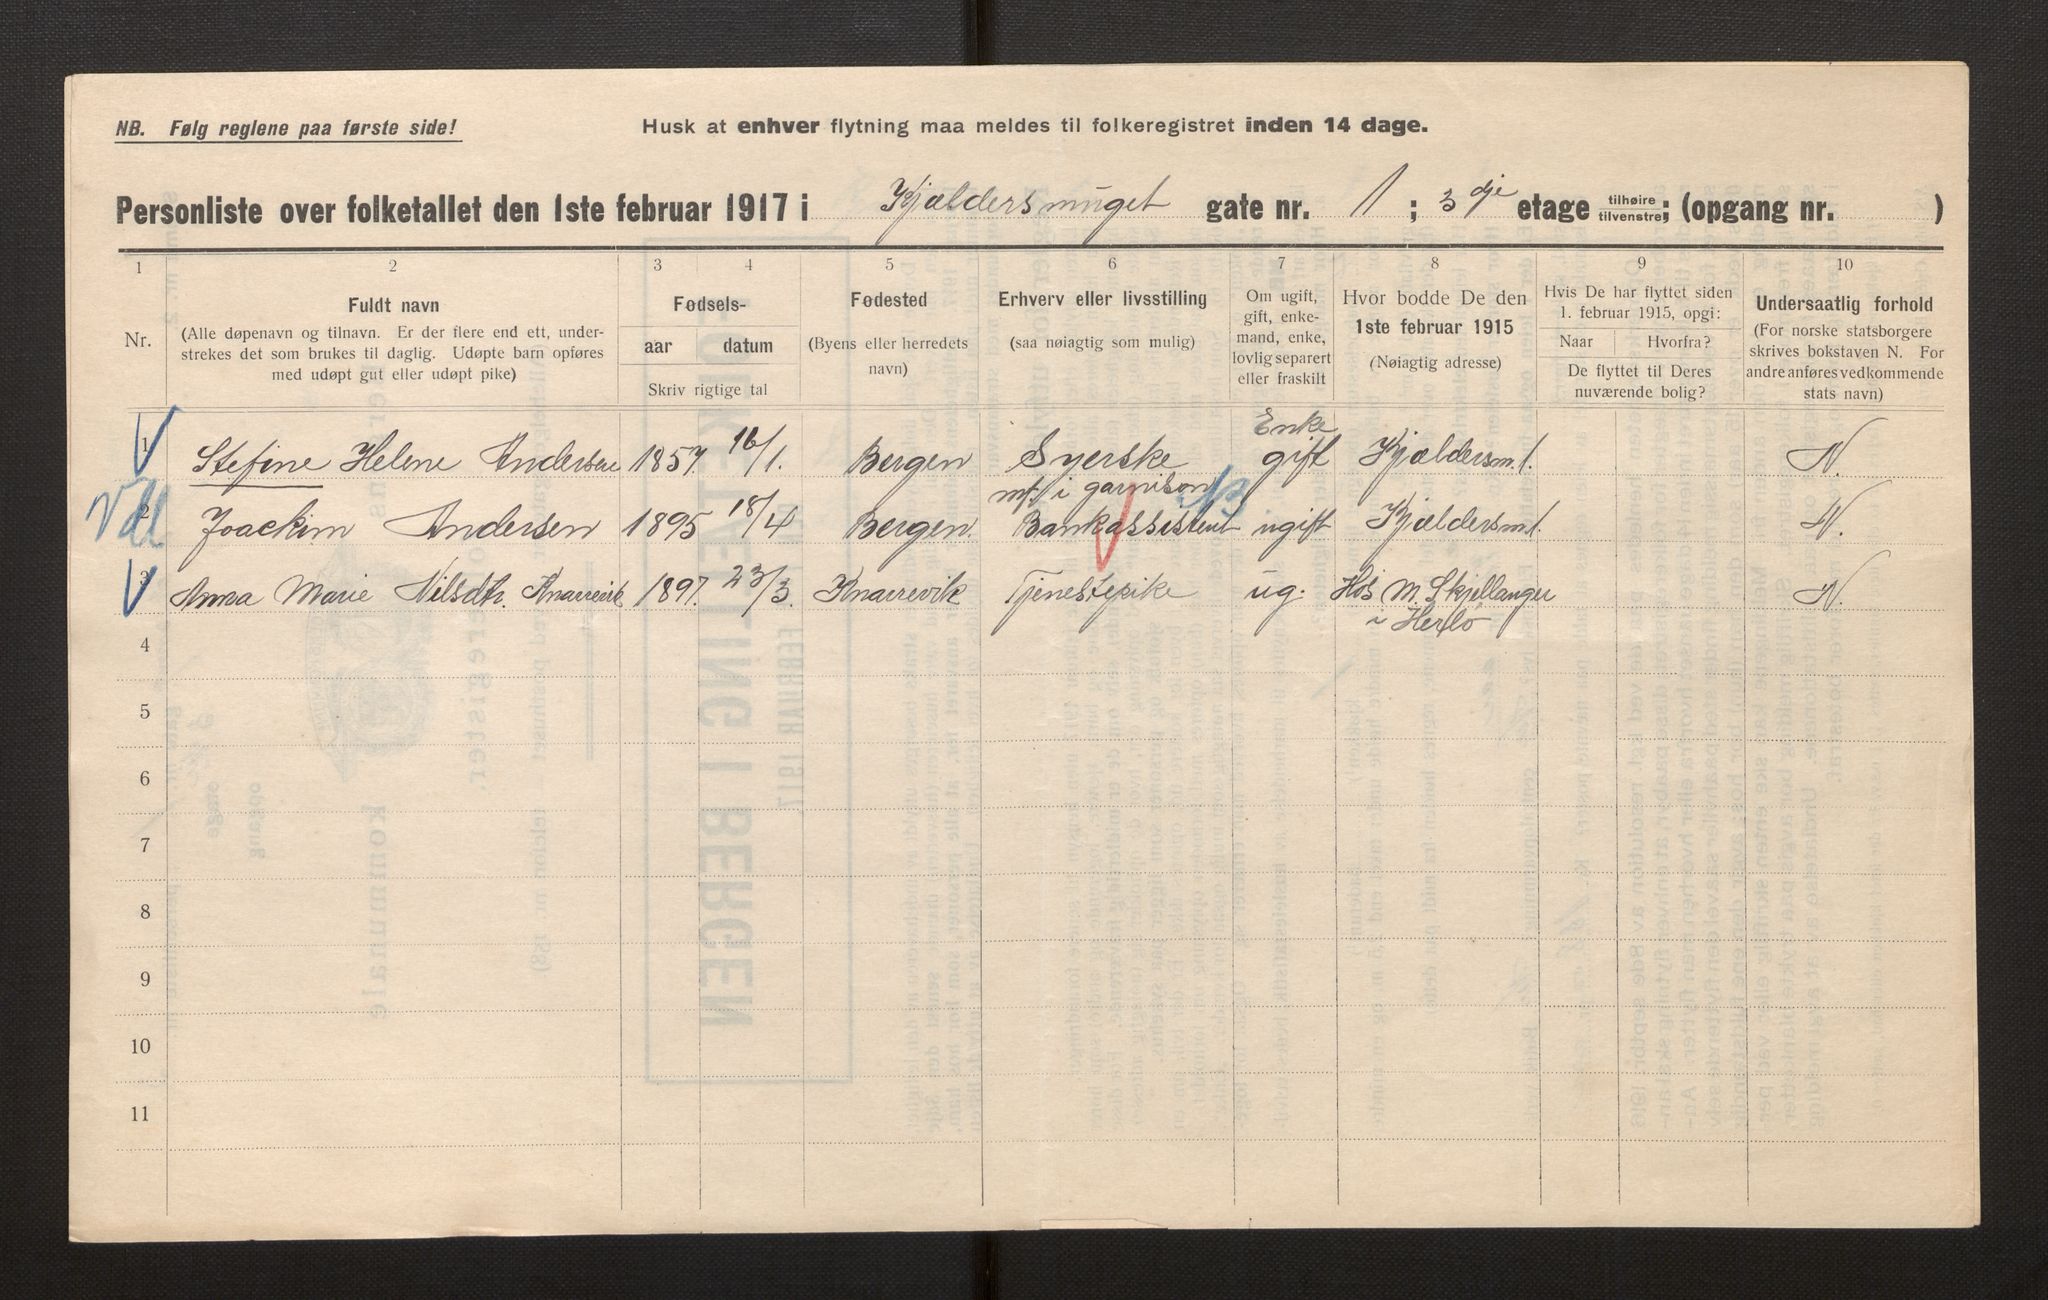 NB. Følg reglene paa første side!
Husk at enhver flytning maa meldes til folkeregistret inden 14 dage.
Personliste over folketallet den 1ste februar 1917 i Kjældersmuget gate nr. 1 ; 3 dje etage tilhøire tilvenstre; (opgang nr. )
1 2 3 4 5 6 7 8 9 10
Nr.
Fuldt navn
(Alle døpenavn og tilnavn. Er der flere end ett, under-
strekes det som brukes til daglig. Udøpte barn opføres
med udøpt gut eller udøpt pike)
Fødsels-
aar datum
Skriv rigtige tal
Fødested
(Byens eller herredets
navn)
Erhverv eller livsstilling
(saa nøiagtig som mulig)
Om ugift,
gift, enke-
mand, enke,
lovlig separert
eller fraskilt
Hvor bodde De den
1ste februar 1915
(Nøiagtig adresse)
Hvis De har flyttet siden
1. februar 1915, opgi:
Naar Hvorfra?
De flyttet til Deres
nuværende bolig?
Undersaatlig forhold
(For norske statsborgere
skrives bokstaven N. For
andre anføres vedkommende
stats navn)
Enke
1 Stefine Helene Andersen 1857. 16/1. Bergen Syerske gift Kjældersm. 1. N.
mt. i garnison
2 Joachim Andersen 1895 18/4 Bergen. Bankassistent ugift Kjældersm 1. N.
3 Anna Marie Nilsdtr. Knarrevik 1897. 23/3. Knarrevik Tjenestepike ug. Hos M. Skjellanger N.
i Herlø
4
5
6
7
8
9
10
11